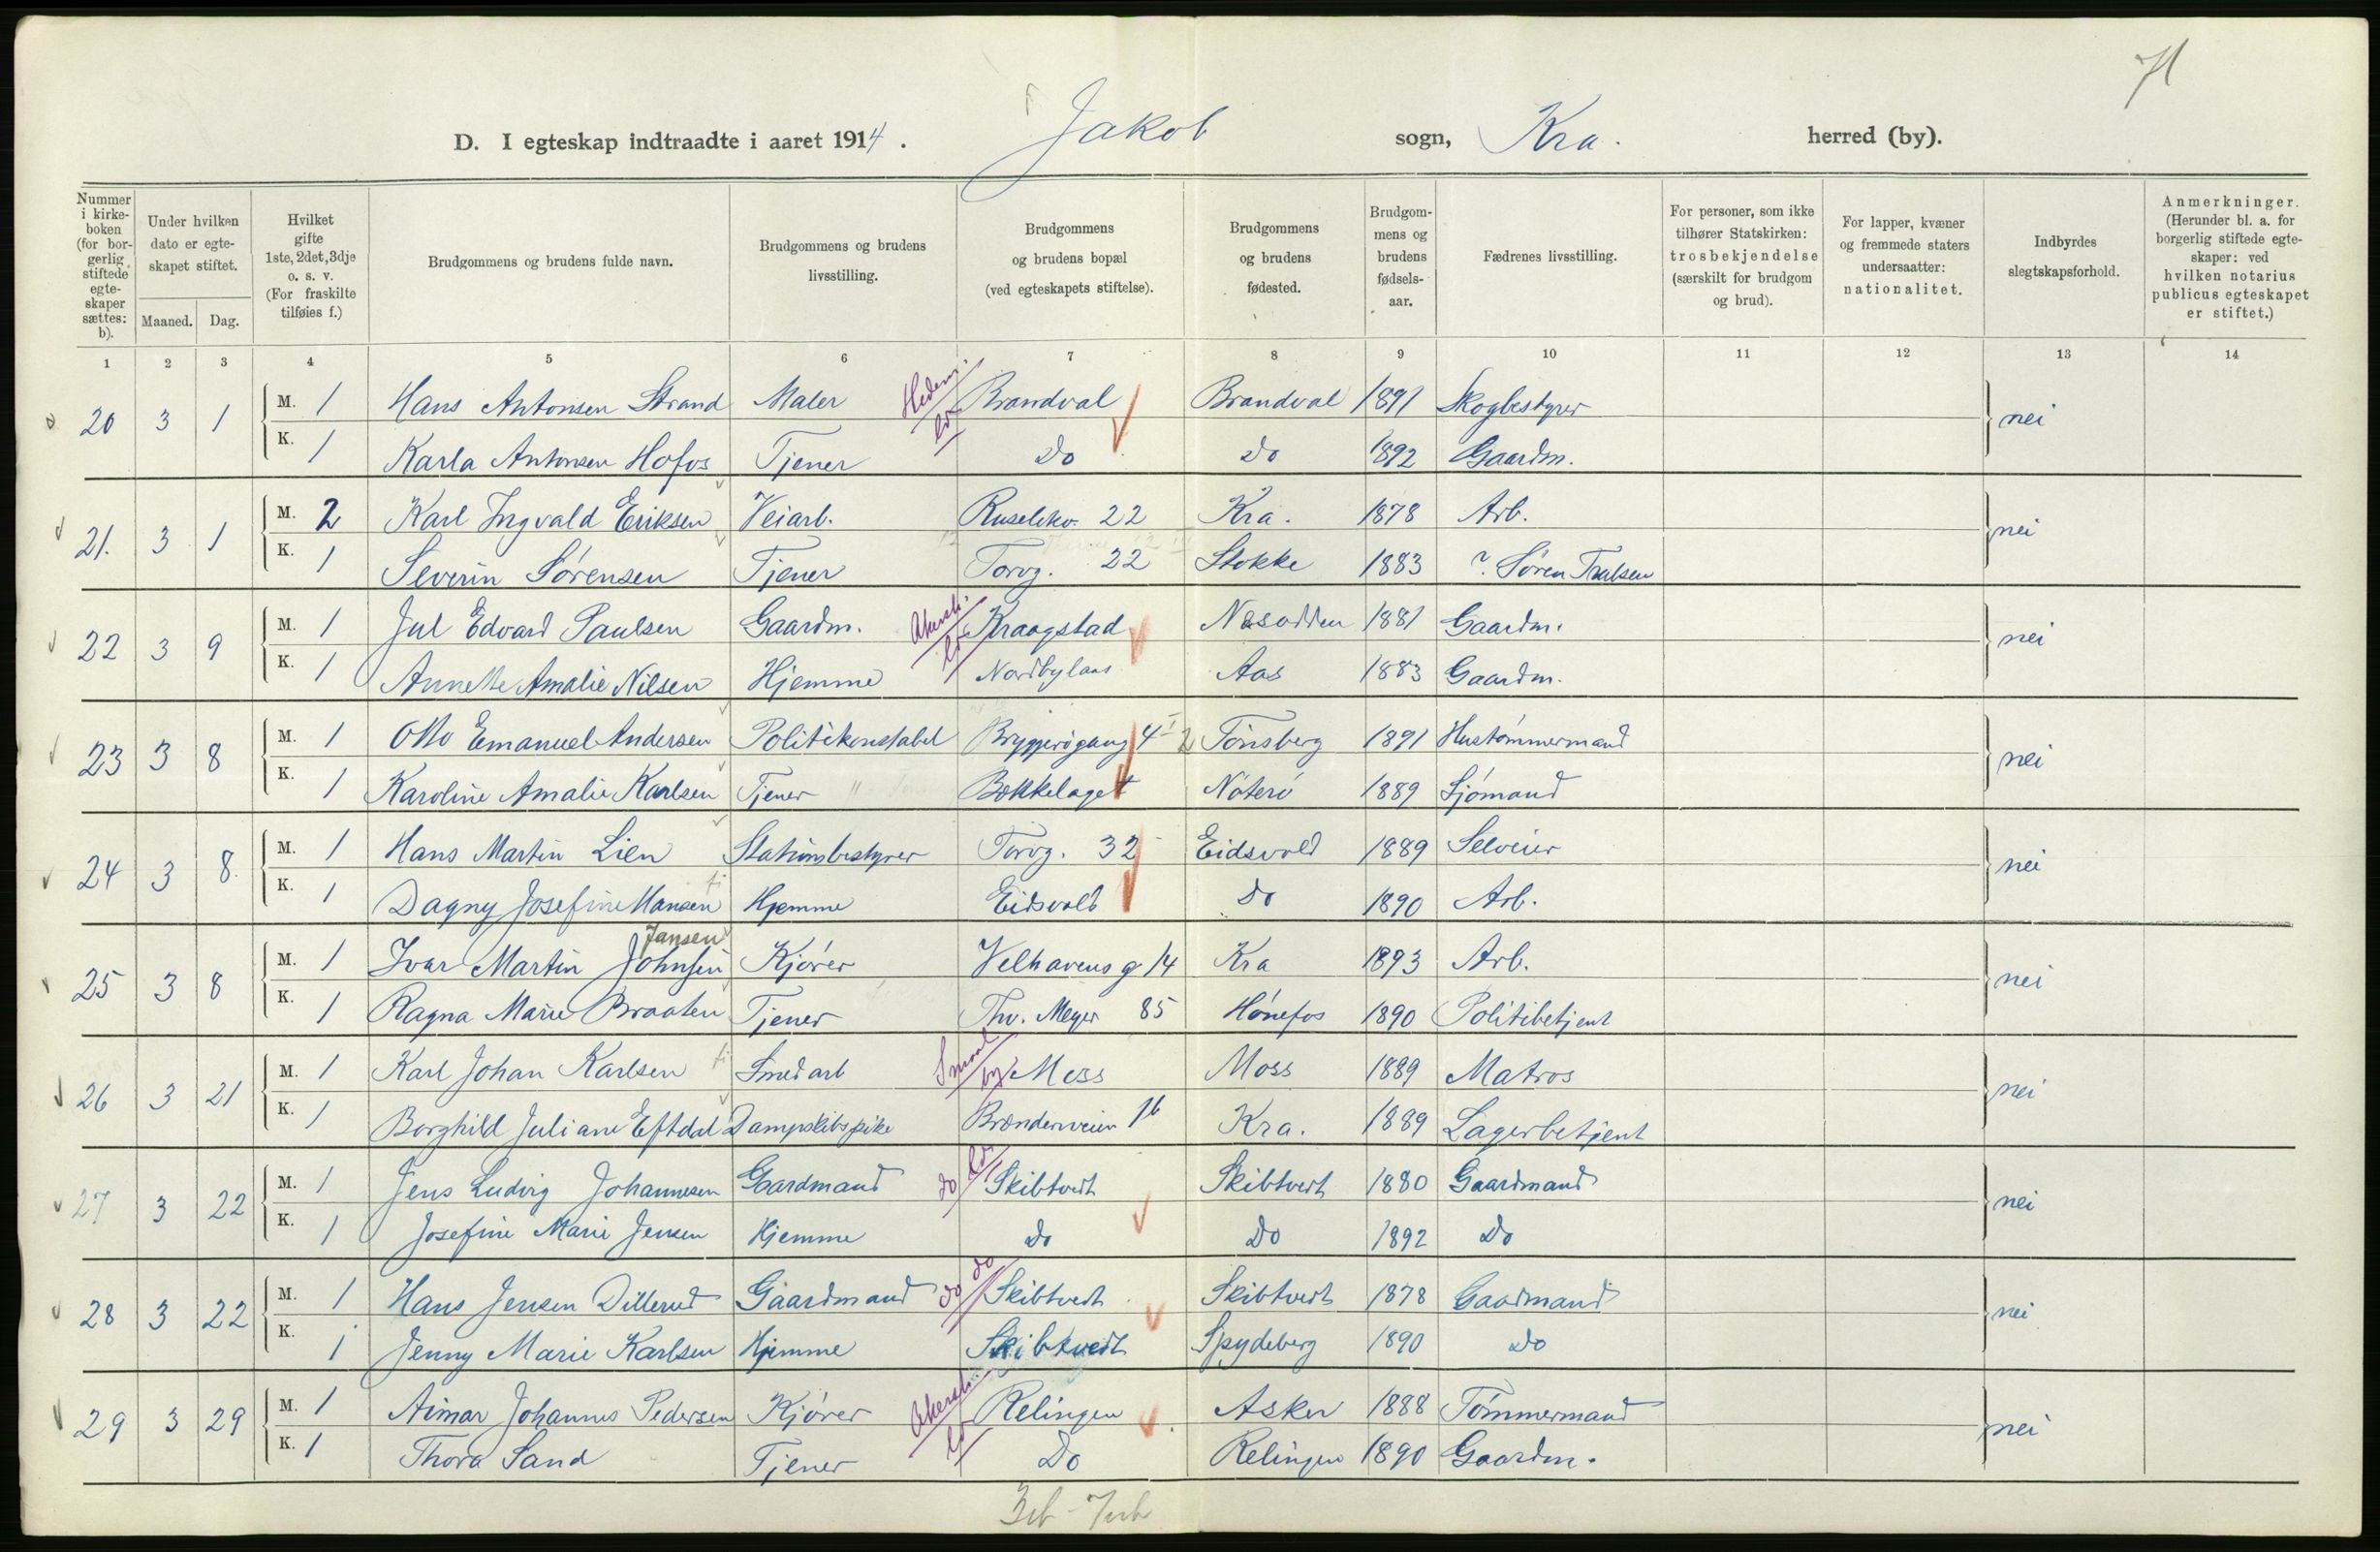 71
D. I egteskap indtraadte i aaret 1914. Jakob sogn, Kra. herred (by).
Nummer i kirke-boken (for bor-gerlig stiftede egte-skaper sættes: b). | Under hvilken dato er egte-skapet stiftet. Maaned. Dag. | Hvilket gifte 1ste, 2det, 3dje o. s. v. (For fraskilte tilføies f.) | Brudgommens og brudens fulde navn. | Brudgommens og brudens livsstilling. | Brudgommens og brudens bopæl (ved egteskapets stiftelse). | Brudgommens og brudens fødested. | Brudgom-mens og brudens fødsels-aar. | Fædrenes livsstilling. | For personer, som ikke tilhører Statskirken: trosbekjendelse (særskilt for brudgom og brud). | For lapper, kvæner og fremmede staters undersaatter: nationalitet. | Indbyrdes slegtskapsforhold. | Anmerkninger. (Herunder bl. a. for borgerlig stiftede egte-skaper: ved hvilken notarius publicus egteskapet er stiftet.)
1 2 3 4 5 6 7 8 9 10 11 12 13 14
20 3 1 M. 1 Hans Antonsen Strand Maler Brandval Brandval 1891 Skogbestyrer nei
K. 1 Karla Antonsen Hofos Tjener Do Do 1892 Gaardm.
21. 3 1 M. 2 Karl Ingvald Eriksen Veiarb. Ruseløkv. 22 Kra. 1878 Arb. nei
K. 1 Severin Sørensen Tjener Torvg. 22 Stokke 1883 ? Søren Trulsen
22 3 9 M. 1 Jul Edvard Paulsen Gaardm. Akersh. Kraagstad Nesodden 1881 Gaardm. nei
K. 1 Annette Amalie Nilsen Hjemme Nordbylaas Aas 1883 Gaardm.
23 3 8 M. 1 Otto Emanuel Andersen Politikonstabel Bryggerigang 4 Tønsberg 1891 Hustømmermand nei
K. 1 Karoline Amalie Karlsen Tjener Bækkelaget Nøterø 1889 Sjømand
24 3 8 M. 1 Hans Martin Lien Stationsbestyrer Torvg. 32 Eidsvold 1889 Selveier nei
K. 1 Dagny Josefine Hansen Hjemme Eidsvold Do 1890 Arb.
Jansen
25 3 8 M. 1 Ivar Martin Johnsen Kjører Velhavens g 14 Kra 1893 Arb. nei
K. 1 Ragna Marie Braaten Tjener Thv. Meyer 85 Hønefos 1890 Politibetjent
26 3 21 M. 1 Karl Johan Karlsen Smedarb Smaal. by Moss Moss 1889 Matros nei
K. 1 Borghild Juliane Eftdal Dampskibspike Brænderiveien 16 Kra. 1889 Lagerbetjent
27 3 22 M. 1 Jens Ludvig Johannesen Gaardmand do Skibtvedt Skibtvedt 1880 Gaardmand nei
K. 1 Josefine Marie Jensen Hjemme Do Do 1892 Do
28 3 22 M. 1 Hans Jensen Dillerud Gaardmand do do Skibtvedt Skibtvedt 1878 Gaardmand nei
K. 1 Jenny Marie Karlsen Hjemme Skibtvedt Spydeberg 1890 Do
29 3 29 M. 1 Aimar Johannes Pedersen Kjører Akersh. Relingen Asker 1888 Tømmermand nei
K. 1 Thora Sand Tjener Do Relingen 1890 Gaardm.